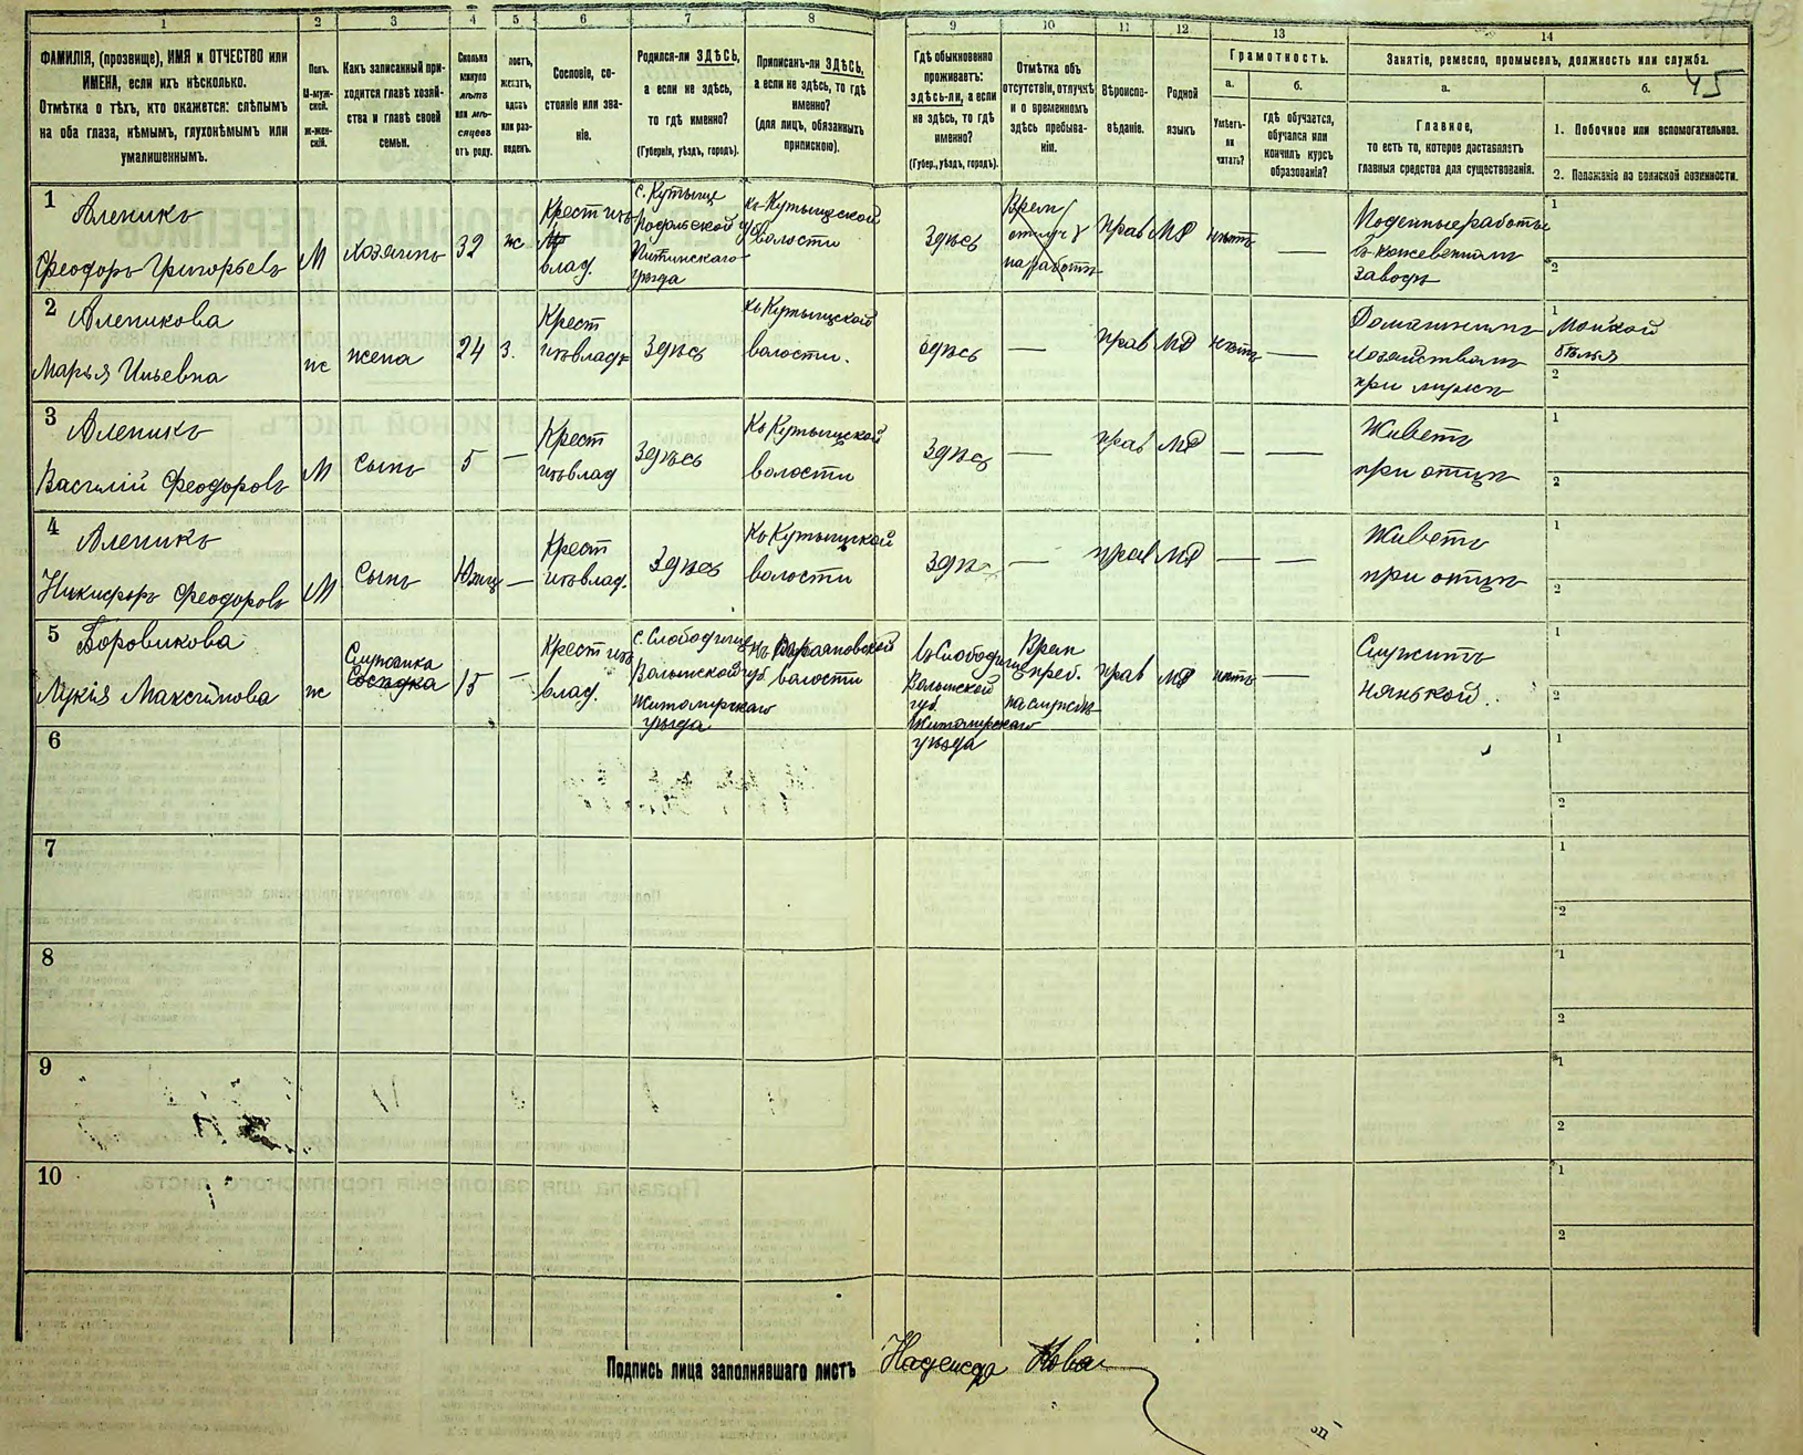 1 2 3 4 5 6 7 8 9 10 11 12 13 14
45
ФАМИЛІЯ, (прозвище), ИМЯ и ОТЧЕСТВО или
ИМЕНА, если ихъ нѣсколько.
Отмѣтка о тѣхъ, кто окажется: слѣпымъ
на оба глаза, нѣмымъ, глухонѣмымъ или
умалишеннымъ.
Полъ.
М-муж-
ской.
ж-жен-
скій.
Какъ записанный при-
ходится главѣ хозяй-
ства и главѣ своей
семьи.
Сколько
минуло
лѣтъ
или мѣ-
сяцевъ
отъ роду.
лостъ,
женатъ,
вдовъ
или раз-
веденъ.
Сословіе, со-
стояніе или зва-
ніе.
Родился-ли ЗДѢСЬ,
а если не здѣсь,
то гдѣ именно?
(Губернія, уѣздъ, городъ).
Приписанъ-ли ЗДѢСЬ,
а если не здѣсь, то гдѣ
именно?
(для лицъ, обязанныхъ
припискою).
Гдѣ обыкновенно
проживаетъ:
здѣсь-ли, а если
не здѣсь, то гдѣ
именно?
(Губер., уѣздъ, городъ).
Отмѣтка объ
отсутствіи, отлучкѣ
и о временномъ
здѣсь пребыва-
ніи.
Вѣроиспо-
вѣданіе.
Родной
языкъ
Грамотность.
а.
Умѣетъ-
ли
читать?
б.
гдѣ обучается,
обучался или
кончилъ курсъ
образованія?
Занятіе, ремесло, промыселъ, должность или служба.
а.
Главное,
то есть то, которое доставляетъ
главныя средства для существованія.
б.
1. Побочное или вспомогательное.
2. Положеніе по воинской повинности.
1
Алепикъ
Феодоръ Григорьевъ
М
хозяинъ
32
ж
Крест изъ
влад.
с. Кутыще
Подольской губ
Литинскаго
уѣзда
къ Кутыщеской
волости
Здѣсь
Врем
отлуч
на работѣ
прав
МР
нѣтъ
—
Поденные работы
въ кожевенномъ
заводѣ
1
2
2
Алепикова
Марья Ильевна
ж
жена
24
З.
Крест
изъ влад
Здѣсь
къ Кутыщской
волости.
Здѣсь
—
прав
МР
нѣтъ
—
Домашнимъ
хозяйствомъ
при мужѣ
1
Мойкой
бѣлья
2
3
Алепикъ
Василій Феодоровъ
М
Сынъ
5
—
Крест
изъ влад
Здѣсь
Къ Кутыщской
волости
Здѣсь
—
прав
МР
—
—
Живетъ
при отцѣ
1
2
4
Алепикъ
Никифоръ Феодоровъ
М
Сынъ
—
Крест
изъ влад.
Здѣсь
Къ Кутыщской
волости
Здѣ
—
прав
МР
—
—
Живетъ
при отцѣ
1
2
5
Боровикова
Лукія Максимова
ж
Служанка
15
—
Крест изъ
влад.
с. Слободище
Волынской губ
Житомирскаго
уѣзда
волости
въ Слободище
Волынской
губ.
Житомирскаго
уѣзда
Врем
преб.
на службѣ
прав
МР
нѣтъ
—
Служитъ
нянькой.
1
2
6
1
2
7
1
2
8
1
2
9
1
2
10
1
2
Подпись лица заполнявшаго листъ
Надежда